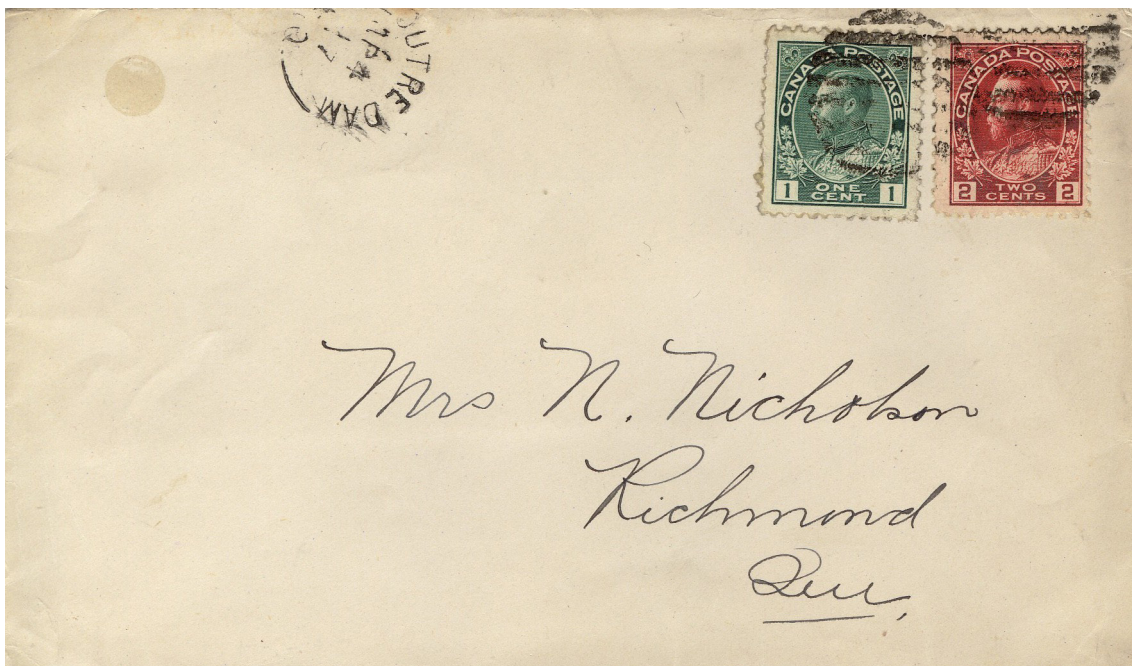 OUTRE
DAM
CANADA POSTAGE
1 ONE CENT 1
CANADA POSTAGE
2 TWO CENTS 2
Mrs N. Nicholson
Richmond
Que,